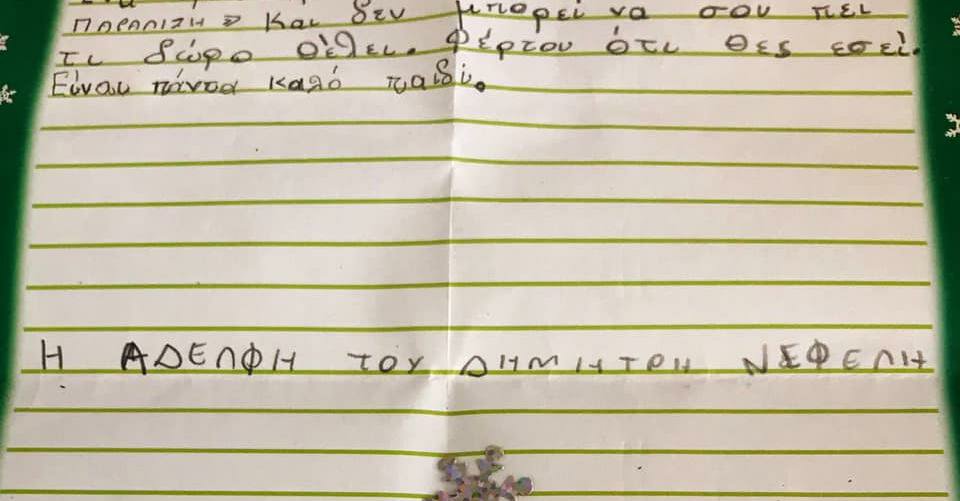 ΠΑΡΑΛΙΣΗ» Και δεν μπορεί να σου πει
τι δώρο θέλει. Φέρτου ότι θες εσεί.
Είναι πάντα καλό παιδί.
Η ΑΔΕΛΦΗ ΤΟΥ ΔΗΜΗΤΡΗ ΝΕΦΕΛΗ